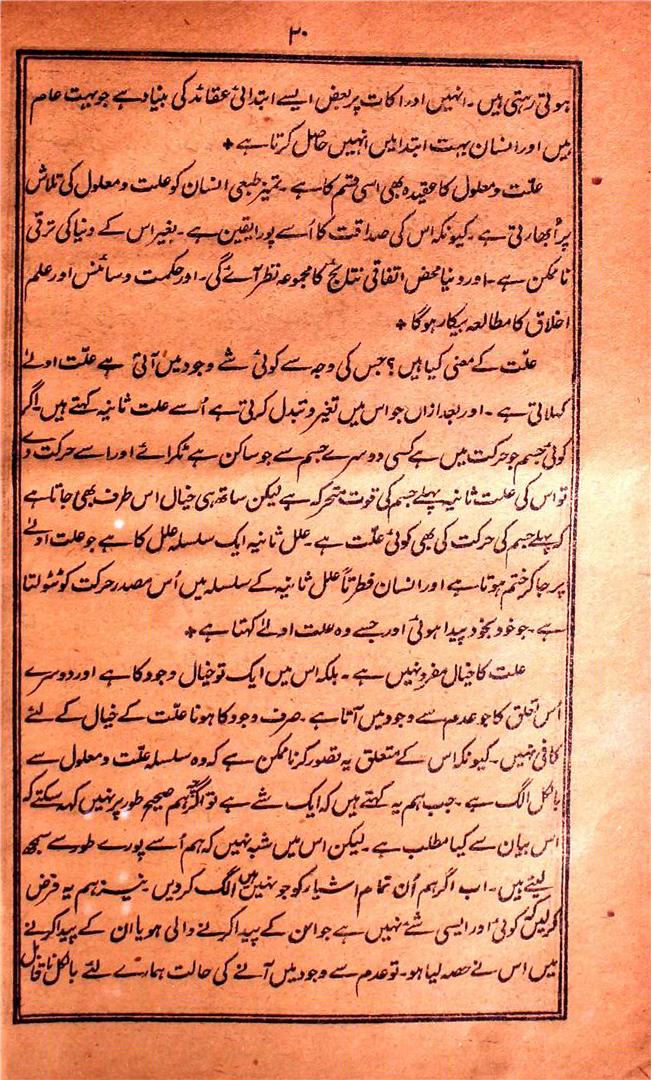 ۲۰
ہوتی رہتی ہیں۔ انہیں ادراکات پر بعض ایسے ابتدائی عقائد کی بنیاد ہے جو بہت عام
ہیں اور انسان بہت ابتدا میں انہیں حاصل کرتا ہے ٭
علّت و معلول کا عقیدہ بھی اسی قسم کا ہے۔ تمیز طبعی انسان کو علت و معلول کی تلاش
پر اُبھارتی ہے۔ کیونکہ اس کی صداقت کا اُسے پورا یقین ہے۔ بغیر اس کے دنیا کی ترقی
ناممکن ہے۔ اور دنیا محض اتفاقی نتائج کا مجموعہ نظر آئے گی۔ اور حکمت و سائنس اور علم
اخلاق کا مطالعہ بیکار ہوگا ٭
علّت کے معنی کیا ہیں؟ جس کی وجہ سے کوئی شے وجود میں آتی ہے علّت اولےٰ
کہلاتی ہے۔ اور بعد ازاں جو اس میں تغیر و تبدل کرتی ہے اُسے علت ثانیہ کہتے ہیں۔ اگر
کوئی جسم جو حرکت میں ہے کسی دوسرے جسم سے جو ساکن ہے ٹکرائے اور اسے حرکت دے
تو اس کی علت ثانیہ پہلے جسم کی قوت متحرکہ ہے لیکن ساتھ ہی خیال اس طرف بھی جاتا ہے
کہ پہلے جسم کی حرکت کی بھی کوئی علّت ہے۔ علل ثانیہ ایک سلسلہ علل کا ہے جو علت اولےٰ
پر جا کر ختم ہوتا ہے اور انسان فطرتاً علل ثانیہ کے سلسلہ میں اُس مصدر حرکت کو ٹٹولتا
ہے۔ جو خود بخود پیدا ہوئی اور جسے وہ علت اولےٰ کہتا ہے ٭
علت کا خیال مفرد نہیں ہے۔ بلکہ اس میں ایک تو خیال وجود کا ہے اور دوسرے
اُس تعلق کا جو عدم سے وجود میں آتا ہے۔ صرف وجود کا ہونا علّت کے خیال کے لئے
کافی نہیں۔ کیونکہ اس کے متعلق یہ تصور کرنا ممکن ہے کہ وہ سلسلہ علّت و معلول سے
بالکل الگ ہے۔ جب ہم یہ کہتے ہیں کہ ایک شے ہے تو اگرچہ ہم صحیح طور پر نہیں کہہ سکتے کہ
اس بیان سے کیا مطلب ہے۔ لیکن اس میں شبہ نہیں کہ ہم اُسے پورے طور سے سمجھ
لیتے ہیں۔ اب اگر ہم اُن تمام اشیاء کو جو نہیں ہیں الگ کر دیں۔ نیز ہم یہ فرض
کرلیں کہ کوئی اور ایسی شے نہیں ہے جو اس کے پیدا کرنے والی ہو یا ان کے پیدا کرنے
میں اس نے حصہ لیا ہو۔ تو عدم سے وجود میں آنے کی حالت ہمارے لئے بالکل ناقابل